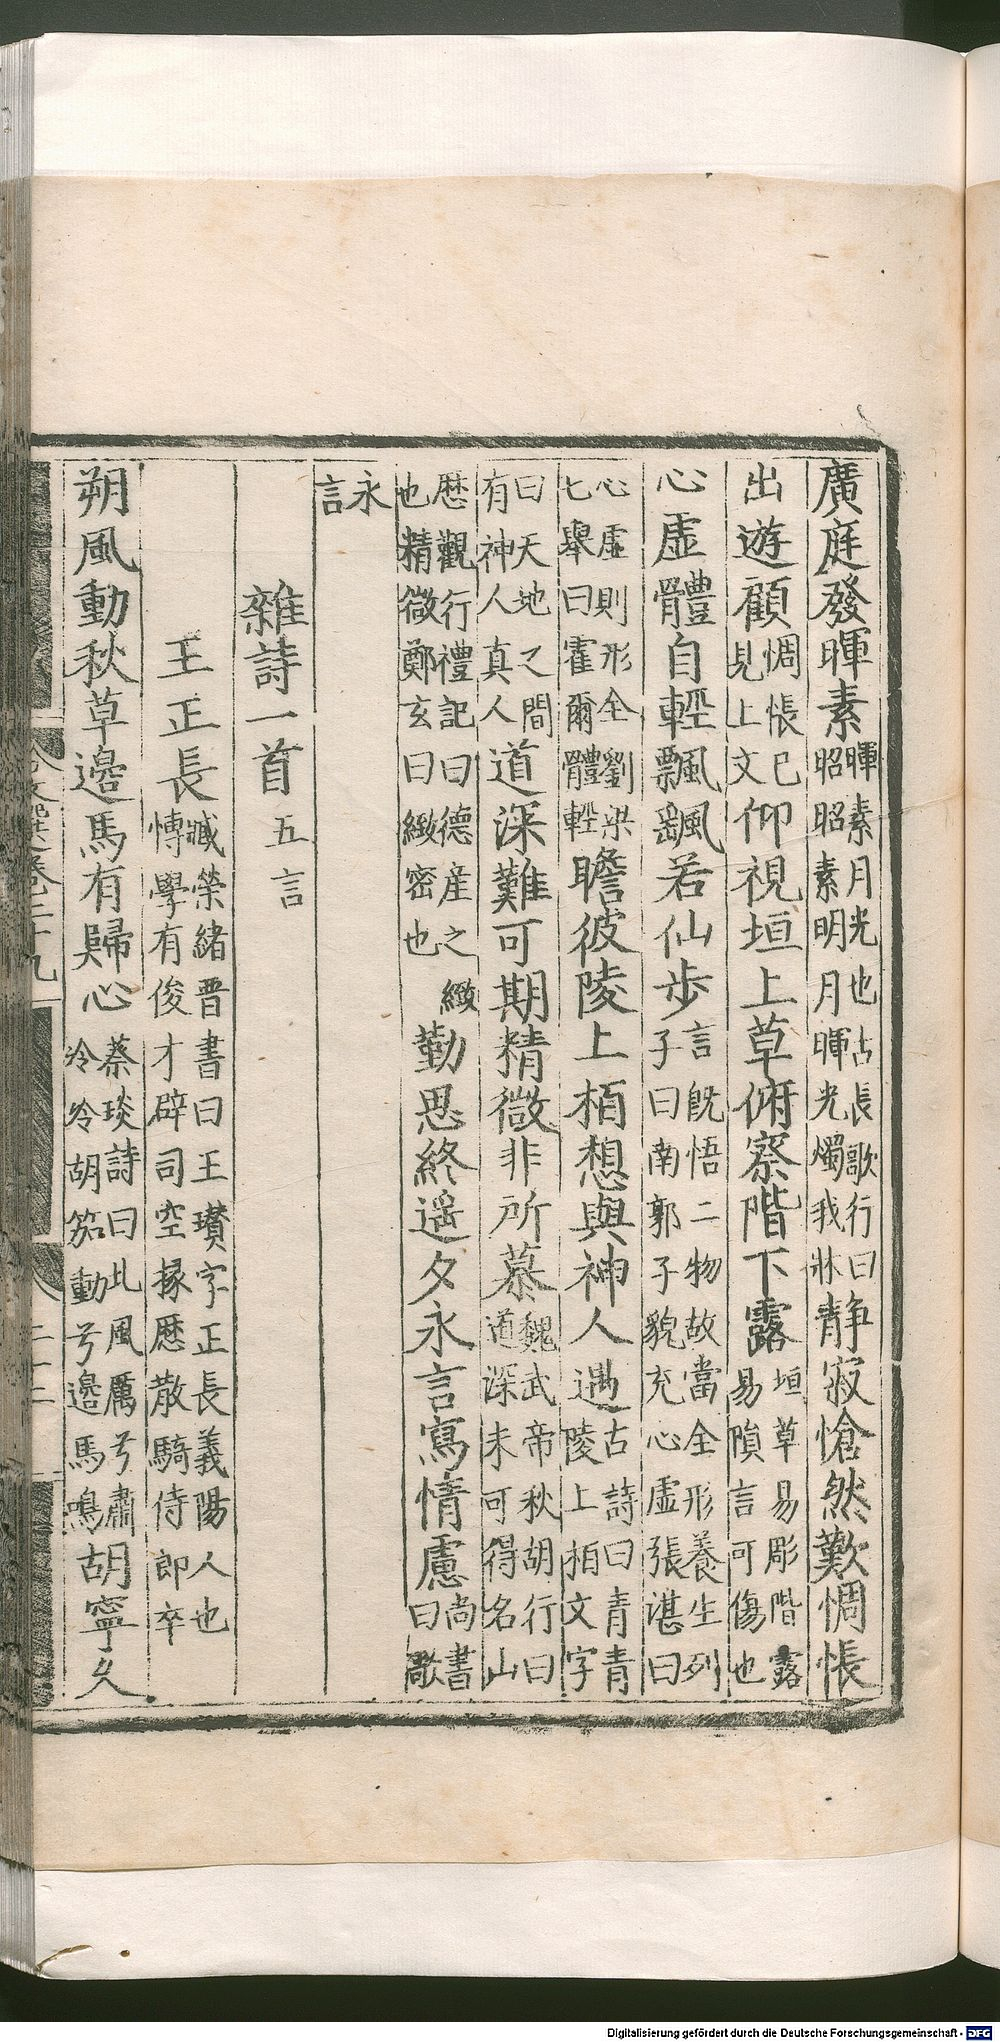 廣庭發暉素暉素月光也古長歌行曰昭昭素明月暉光燭我牀靜寂愴然歎惆悵
出遊顧惆悵已見上文仰視垣上草俯察階下露垣草易彫階露易隕言可傷也
心虛體自輕飄颻若仙步言既悟二物故當全形養生列子曰南郭子貌充心虛張湛曰
心虛則形全劉梁七舉曰霍爾體輕瞻彼陵上栢想與神人遇古詩曰青青陵上栢文字
曰天地之間有神人真人道深難可期精微非所慕魏武帝秋胡行曰道深未可得名山
歷觀行禮記曰德産之緻也精微鄭玄曰緻密也勤思終遥夕永言寫情慮尚書曰歌
永言
雜詩一首五言
王正長臧榮緒晋書曰王瓚字正長義陽人也博學有俊才辟司空掾歷散騎侍郎卒
朔風動秋草邊馬有歸心蔡琰詩曰北風厲兮肅泠泠胡笳動兮邊馬鳴胡寧久
文選卷二十九
Digitalisierung gefördert durch die Deutsche Forschungsgemeinschaft - DFG